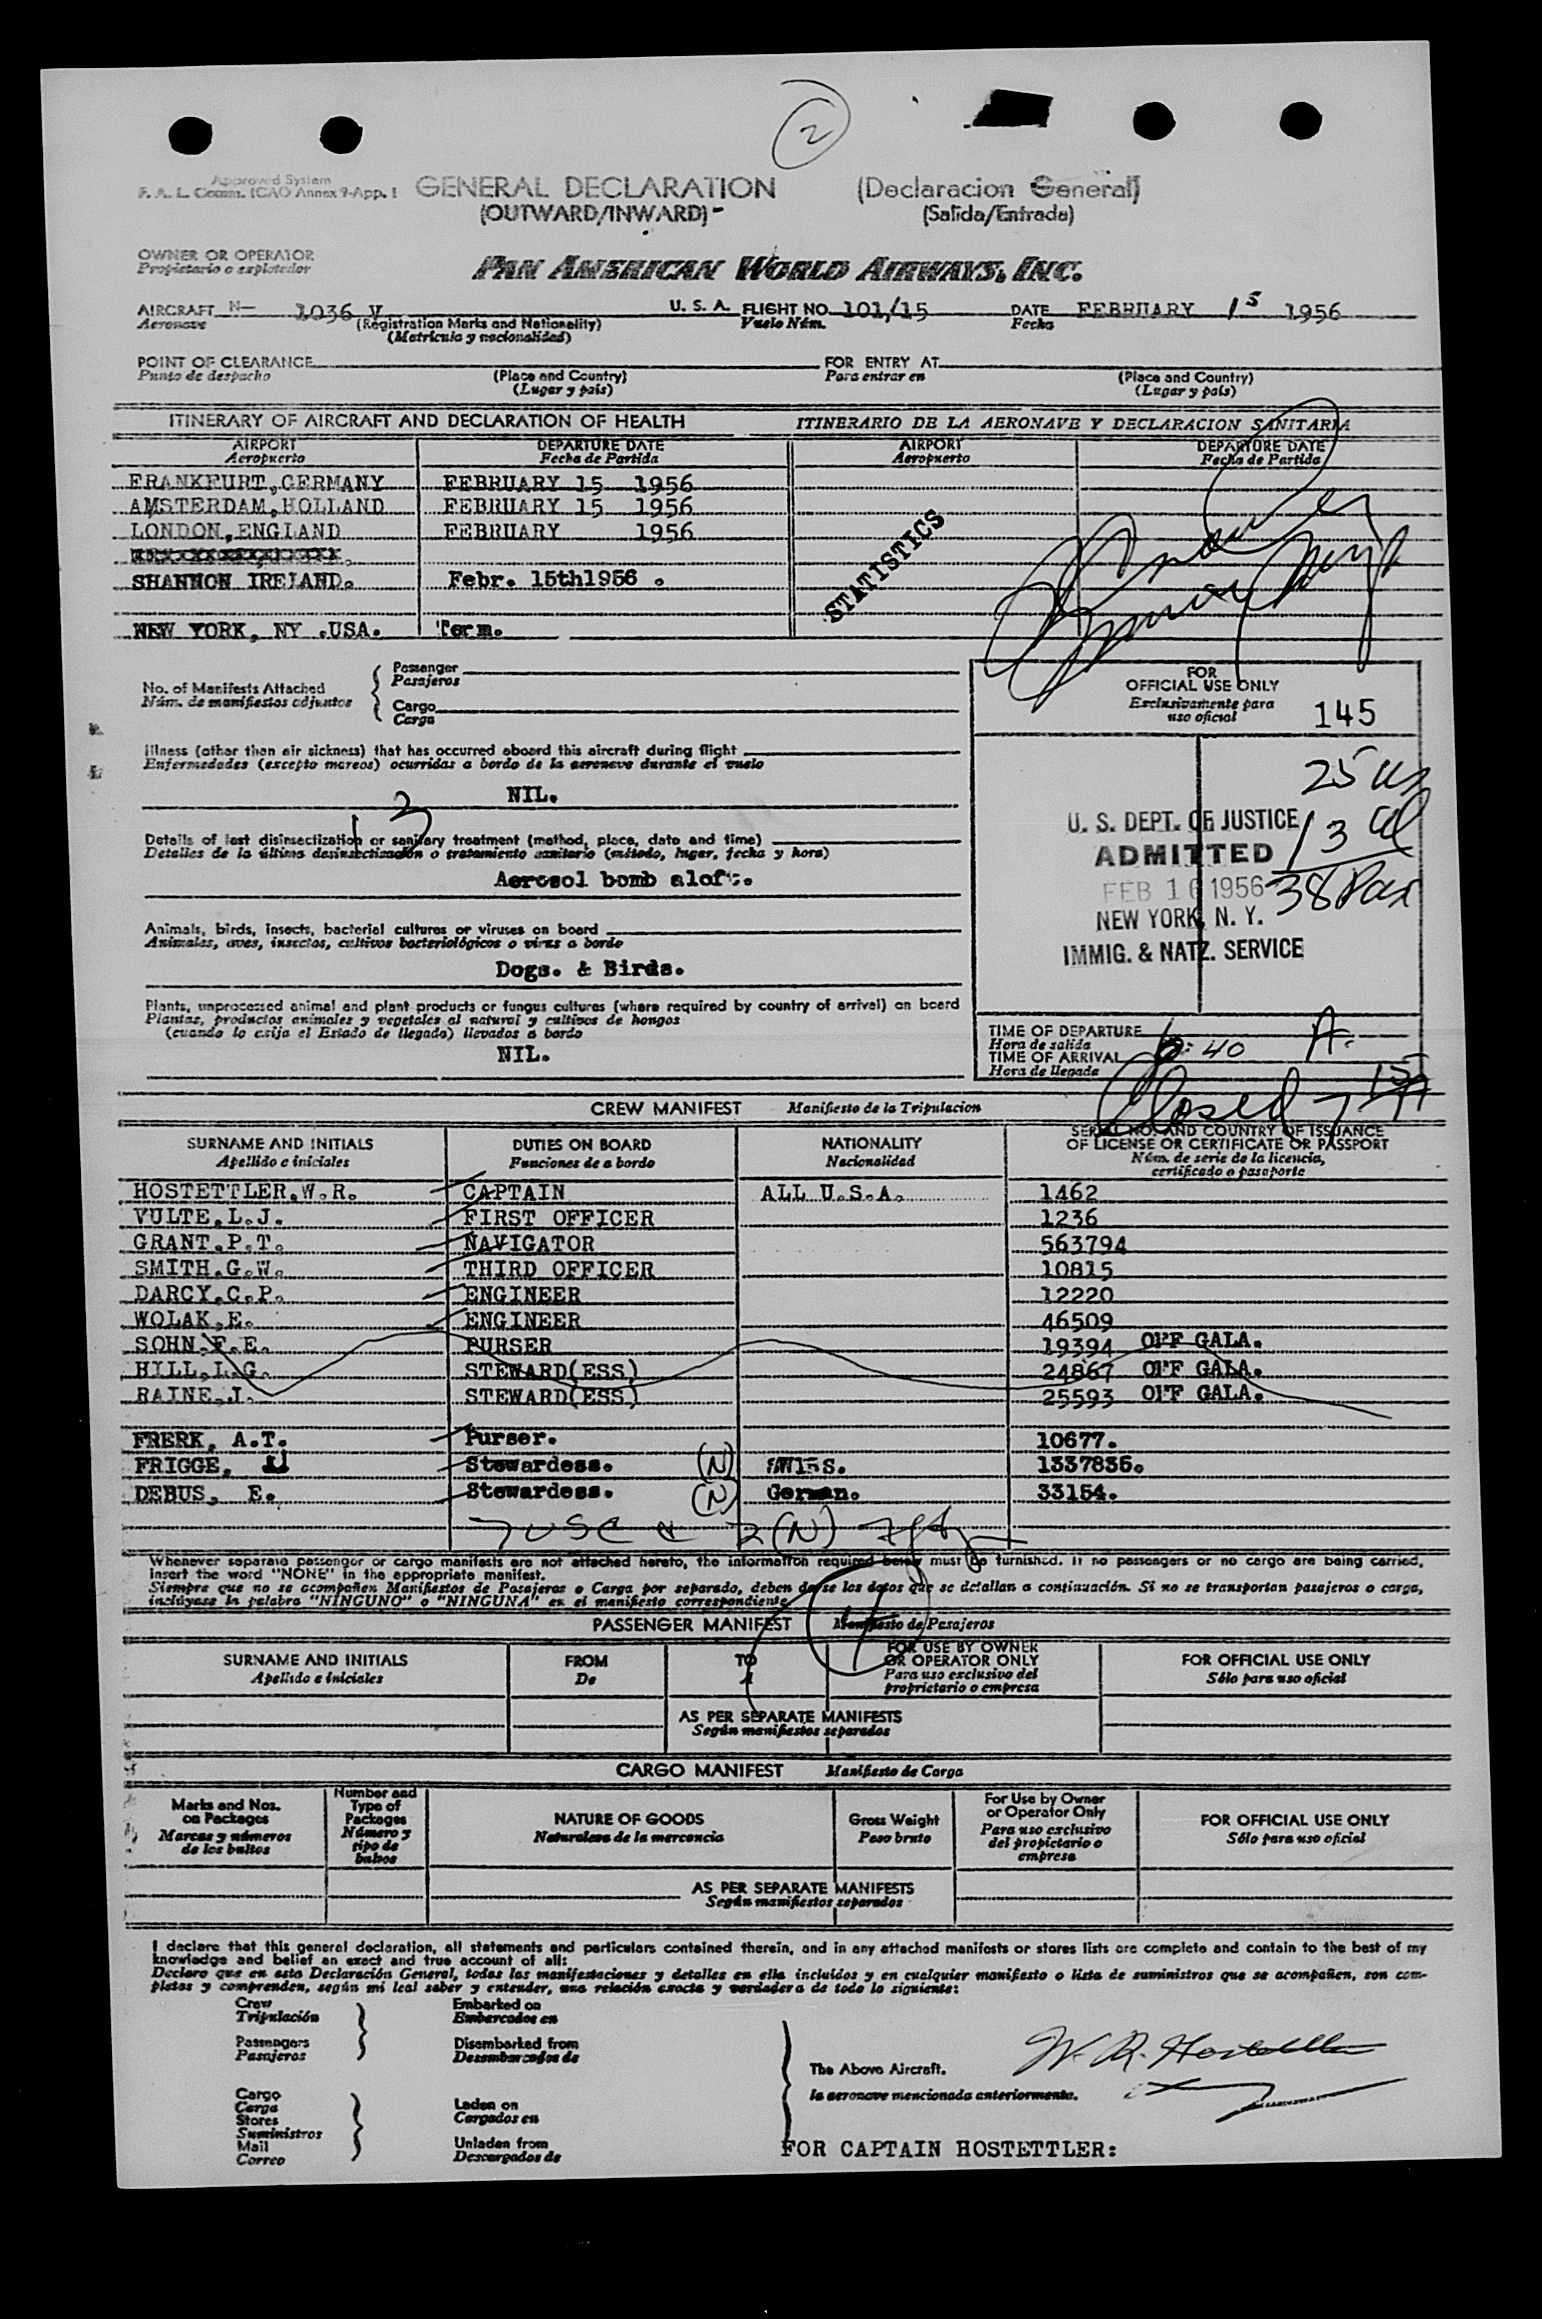 2
Approved System
F. A. L. Comm. ICAO Annex 9-App. I
GENERAL DECLARATION (Declaracion General)
(OUTWARD/INWARD) (Salida/Entrada)
OWNER OR OPERATOR
Propietario o explotador
PAN AMERICAN WORLD AIRWAYS, INC.
AIRCRAFT N- 1036 V U. S. A. FLIGHT NO. 101/15 DATE FEBRUARY 15 1956
Aeronave (Registration Marks and Nationality) Vuelo Núm. Fecha
(Matricula y nacionalidad)
POINT OF CLEARANCE FOR ENTRY AT
Punto de despacho (Place and Country) Para entrar en (Place and Country)
(Lugar y pais) (Lugar y pais)
ITINERARY OF AIRCRAFT AND DECLARATION OF HEALTH ITINERARIO DE LA AERONAVE Y DECLARACION SANITARIA
AIRPORT DEPARTURE DATE AIRPORT DEPARTURE DATE
Aeropuerto Fecha de Partida Aeropuerto Fecha de Partida
FRANKFURT,GERMANY FEBRUARY 15 1956
AMSTERDAM,HOLLAND FEBRUARY 15 1956
LONDON,ENGLAND FEBRUARY 1956
SHANNON IRELAND. Febr. 15th1956 .
STATISTICS
NEW YORK, NY .USA. Term.
No. of Manifests Attached
Núm. de manifiestos adjuntos
Passenger
Pasajeros
Cargo
Carga
FOR
OFFICIAL USE ONLY
Exclusivamente para
uso oficial
145
Illness (other than air sickness) that has occurred aboard this aircraft during flight
Enfermedades (excepto mareos) ocurridas a bordo de la aeronave durante el vuelo
NIL.
Details of last disinsectization or sanitary treatment (method, place, date and time)
Detalles de la última desinsectización o tratamiento sanitario (método, lugar, fecha y hora)
Aerosol bomb aloft.
Animals, birds, insects, bacterial cultures or viruses on board
Animales, aves, insectos, cultivos bacteriológicos o virus a bordo
Dogs. & Birds.
Plants, unprocessed animal and plant products or fungus cultures (where required by country of arrival) on board
Plantas, productos animales y vegetales al natural y cultivos de hongos
(cuando lo exija el Estado de llegada) llevados a bordo
NIL.
25 us
13 al
38 Pax
U. S. DEPT. OF JUSTICE
ADMITTED
FEB 16 1956
NEW YORK, N. Y.
IMMIG. & NATZ. SERVICE
TIME OF DEPARTURE
Hora de salida
TIME OF ARRIVAL 6:40 A.
Hora de llegada
Closed 7 15 A
CREW MANIFEST Manifiesto de la Tripulacion
SURNAME AND INITIALS DUTIES ON BOARD NATIONALITY SERIAL NO. AND COUNTRY OF ISSUANCE
OF LICENSE OR CERTIFICATE OR PASSPORT
Apellido e iniciales Funciones de a bordo Nacionalidad Núm. de serie de la licencia,
certificado o pasaporte
HOSTETTLER.W.R. CAPTAIN ALL U.S.A. 1462
VULTE.L.J. FIRST OFFICER 1236
GRANT.P.T. NAVIGATOR 563794
SMITH.G.W. THIRD OFFICER 10815
DARCY.C.P. ENGINEER 12220
WOLAK.E. ENGINEER 46509
SOHN.F.E. PURSER 19394 OFF GALA.
HILL.L.G. STEWARD(ESS) 24867 OFF GALA.
RAINE.J. STEWARD(ESS) 25593 OFF GALA.
FRERK, A.T. Purser. 10677.
FRIGGE, Stewardess. (N) SWISS. 1337835.
DEBUS, E. Stewardess. (N) German. 33154.
7 USC & 2 (N)
Whenever separate passenger or cargo manifests are not attached hereto, the information required below must be furnished. If no passengers or no cargo are being carried,
insert the word "NONE" in the appropriate manifest.
Siempre que no se acompañen Manifiestos de Pasajeros o Carga por separado, deben darse los datos que se detallan a continuación. Si no se transportan pasajeros o carga,
inclúyase la palabra "NINGUNO" o "NINGUNA" en el manifiesto correspondiente.
PASSENGER MANIFEST Manifiesto de Pasajeros
SURNAME AND INITIALS FROM TO FOR USE BY OWNER
OR OPERATOR ONLY FOR OFFICIAL USE ONLY
Apellido e iniciales De A Para uso exclusivo del
proprietario o empresa Sólo para uso oficial
AS PER SEPARATE MANIFESTS
Según manifiestos separados
CARGO MANIFEST Manifiesto de Carga
Marks and Nos.
on Packages
Marcas y números
de los bultos
Number and
Type of
Packages
Número y
tipo de
bultos
NATURE OF GOODS
Naturaleza de la mercancia
Gross Weight
Peso bruto
For Use by Owner
or Operator Only
Para uso exclusivo
del propietario o
empresa
FOR OFFICIAL USE ONLY
Sólo para uso oficial
AS PER SEPARATE MANIFESTS
Según manifiestos separados
I declare that this general declaration, all statements and particulars contained therein, and in any attached manifests or stores lists are complete and contain to the best of my
knowledge and belief an exact and true account of all:
Declaro que en esta Declaración General, todas las manifestaciones y detalles en ella incluidos y en cualquier manifiesto o lista de suministros que se acompañen, son com-
pletas y comprenden, según mi leal saber y entender, una relación exacta y verdadera de todo lo siguiente:
Crew
Tripulación
Passengers
Pasajeros
Embarked on
Embarcados en
Disembarked from
Desembarcados de
Cargo
Carga
Stores
Suministros
Mail
Correo
Laden on
Cargados en
Unladen from
Descargados de
The Above Aircraft.
la aeronave mencionada anteriormente.
W. R. Hostettler
FOR CAPTAIN HOSTETTLER: